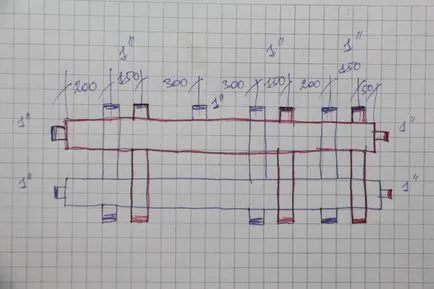 1" 1" 1"
150
200 150 300 300 150 200 50
1"
1" 1"
1" 1"